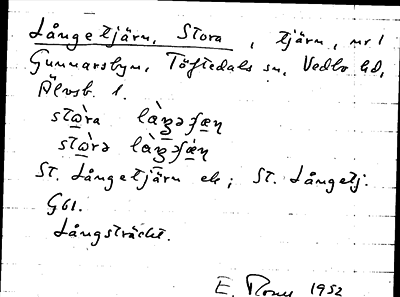 Långetjärn, Stora, tjärn, nr 1
Gunnarsbyn, Töftedals sn, Vedbo hd,
Älvsb. l.
stɷ̀ra làŋəʃæn
stɷ̀rə làŋəʃæ̀n
St. Långetjärn ek; St. Långetj.
G61.
Långsträckt.
E. 1952